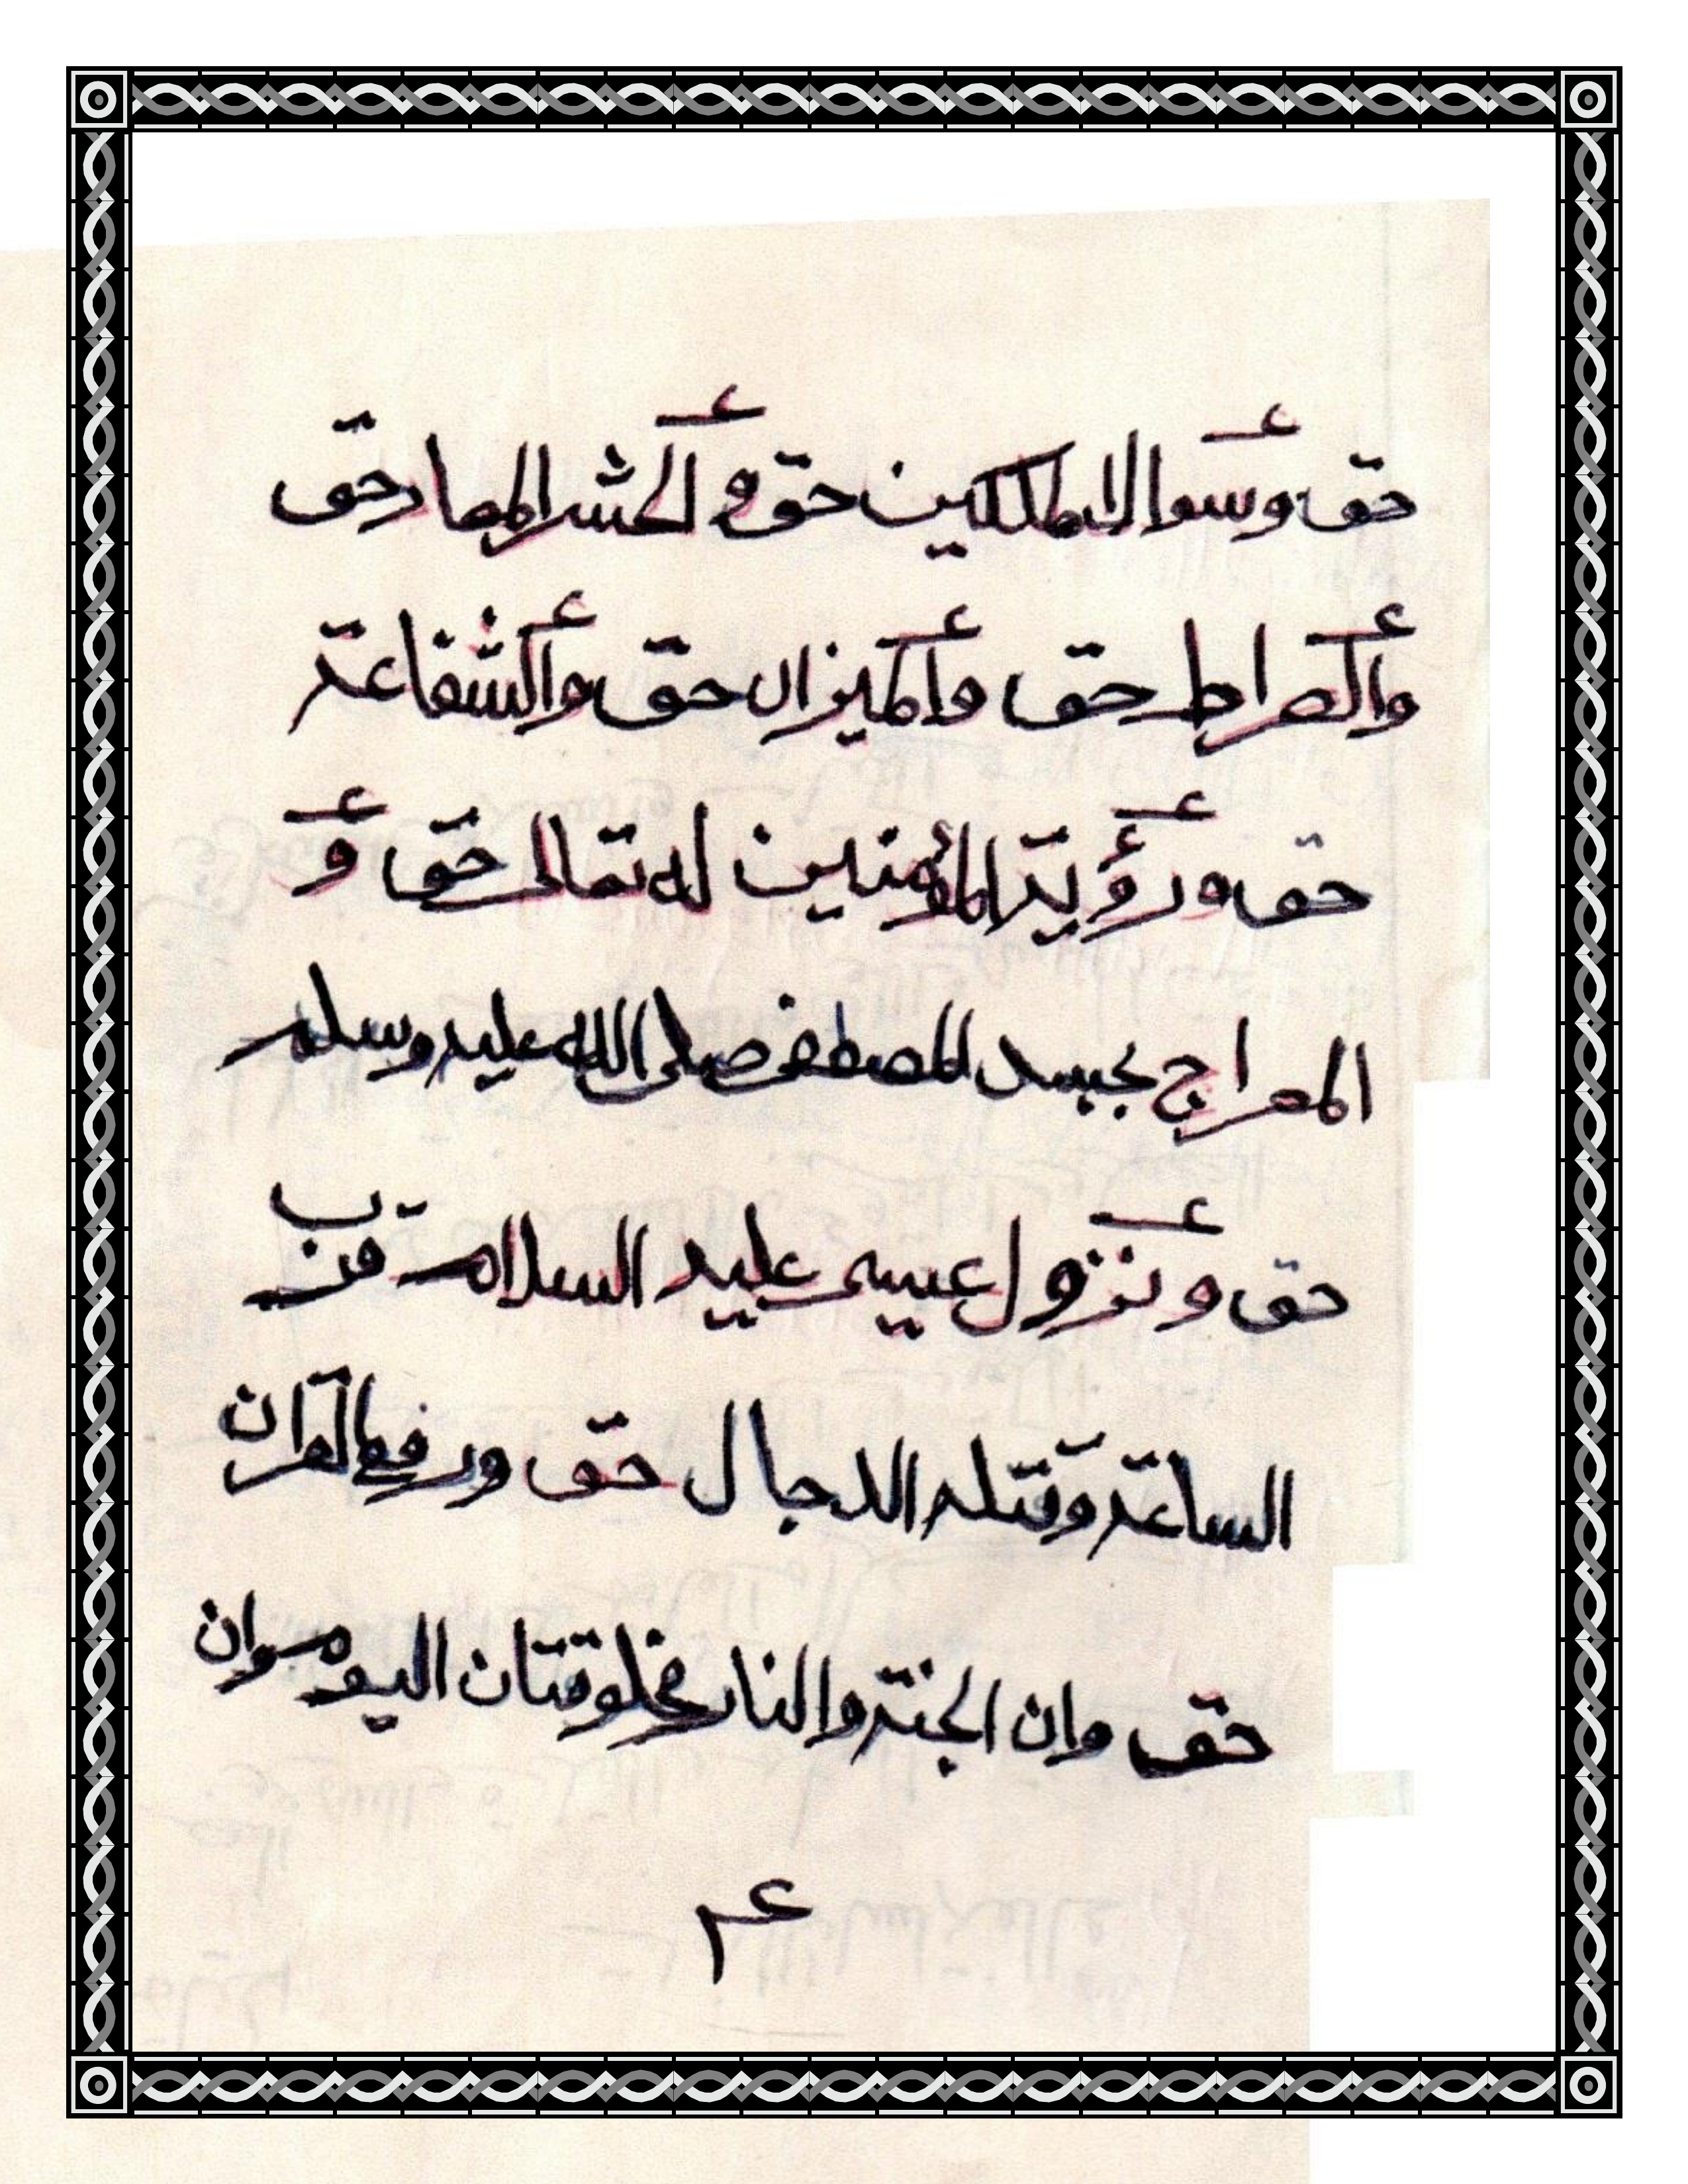 حق وسوال الملكين حق و الحشر المعاد حق
والصراط حق والميزان حق والشفاعة
حق ورؤية المؤمنين له تعالى حق و
المعراج بجسد المصطفى صلى الله عليه وسلم
حق و نزول عيسى عليه السلام قرب
الساعة وقتله الدجال حق ورفع القران
حق وان الجنة والنار مخلوقتان اليوم وان